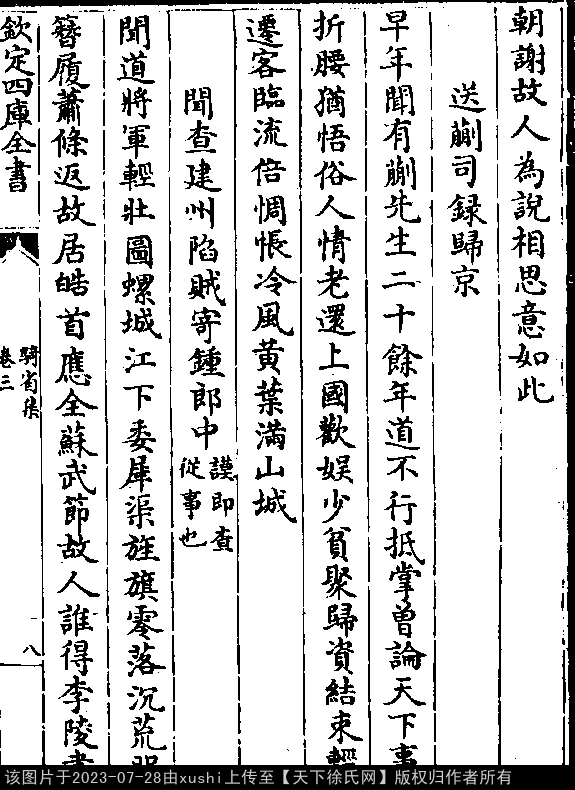 朝謝故人為說相思意如此
送蒯司録歸京
早年聞有蒯先生二十餘年道不行抵掌曾論天下事
折腰猶悟俗人情老還上國歡娛少貧聚歸資結束輕
遷客臨流倍惆悵冷風黄葉滿山城
聞查建州陷賊寄鍾郎中
謨即查
從事也
聞道將軍輕壯圖螺城江下委犀渠旌旗零落沉荒
簪履蕭條返故居皓首應全蘇武節故人誰得李陵書
欽定四庫全書
騎省集
卷三
八
该图片于2023-07-28由xushi上传至【天下徐氏网】版权归作者所有